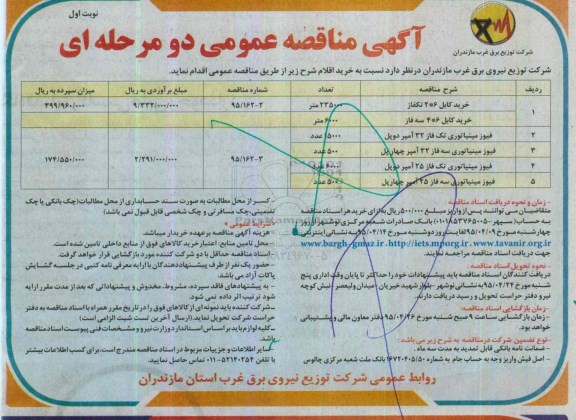 نوبت اول
آگهی مناقصه عمومی دو مرحله ای
شرکت توزیع برق غرب مازندران
شرکت توزیع نیروی برق غرب مازندران درنظر دارد نسبت به خرید اقلام شرح زیر از طریق مناقصه عمومی اقدام نماید.
ردیف شرح مناقصه تعداد شماره مناقصه مبلغ برآوردی به ریال میزان سپرده به ریال
۱ خرید کابل ۶*۲ تکفاز ۲۳۵۰۰۰ متر ۹۵/۱۶۲-۲ ۹/۳۳۲/۰۰۰/۰۰۰ ۳۹۹/۹۶۰/۰۰۰
خرید کابل ۶*۴ سه فاز ۶۰۰۰ متر
۲ فیوز مینیاتوری تک فاز ۳۲ آمپر دوپل ۱۵۰۰۰ عدد ۹۵/۱۶۲-۳ ۲/۲۹۱/۰۰۰/۰۰۰ ۱۷۴/۵۵۰/۰۰۰
۳ فیوز مینیاتوری سه فاز ۳۲ آمپر چهارپل ۵۰۰ عدد
۴ فیوز مینیاتوری تک فاز ۲۵ آمپر دوپل عدد
۵ فیوز مینیاتوری سه فاز ۲۵ آمپر چهارپل ۵۰۰ عدد
- زمان و نحوه دریافت اسناد مناقصه:
متقاضیان می توانند پس از واریز مبلغ ۵۰۰/۰۰۰ ریال به ازای خرید هر اسناد مناقصه
به حساب سپهر ۰۱۰۱۸۵۳۷۶۵۰۰۵ بانک صادرات شعبه مرکزی نوشهر از روز
چهارشنبه مورخ ۹۵/۰۴/۰۹ لغایت روز دوشنبه مورخ ۹۵/۰۴/۱۴ به نشانی اینترنتی
www.bargh-gmaz.ir .http://iets.mporg.ir .www.tavanir.org.ir
جهت دریافت اسناد مناقصه مراجعه نمایند.
- نحوه تحویل اسناد مناقصه:
دریافت کنندگان اسناد مناقصه باید پیشنهادات خود را حداکثر تا پایان وقت اداری پنج
شنبه مورخ ۹۵/۰۴/۲۴ به نشانی نوشهر - بلوار شهید خیریان - میدان ولیعصر - نبش کوچه
نیرو دفتر حراست تحویل و رسید دریافت دارند.
- زمان بازگشایی اسناد مناقصه:
- زمان بازگشایی ساعت ۹ صبح شنبه مورخ ۹۵/۰۴/۲۶ دفتر معاون مالی و پشتیبانی
خواهد بود.
- نوع تضمین شرکت در مناقصه به شرح زیر می باشد:
- ضمانت نامه بانکی قابل تمدید به مدت سه ماه.
- اصل فیش واریز وجه به حساب جام به شماره ۱۶۷۲۰۲۰۵/۵۰ بانک ملت شعبه مرکزی چالوس
- کسر از محل مطالبات به صورت سند حسابداری از محل مطالبات (چک بانکی یا چک
تضمینی، چک مسافرتی و چک شخصی قابل قبول نمی باشد)
- شرایط عمومی:
- هزینه آگهی مناقصه برعهده خریدار میباشد.
- محل تامین منابع: اعتبار خرید کالاهای فوق از منابع داخلی تامین شده است.
- اسناد مناقصه حداقل با دو شرکت کننده مورد بازگشایی قرار خواهد گرفت.
- حضور یک نفر از طرف پیشنهاددهندگان با ارایه معرفی نامه کتبی در جلسه گشایش
پاکات آزاد می باشد.
- به پیشنهادهای فاقد سپرده، مشروط، مخدوش و پیشنهاداتی که بعد از مدت مقرر ارایه
شود ترتیب اثر داده نمی شود.
- شرکت کننده باید نمونه ای از کالاهای فوق را در تاریخ مقرر همراه با اسناد مناقصه به دفتر
حراست شرکت تحویل نماید. (ارسال آخرین تست شیت الزامی است)
- کلیه لوازم باید بر اساس استاندارد وزارت نیرو و مشخصات فنی پیوست اسناد مناقصه
باشد.
- سایر اطلاعات و جزییات مربوط در اسناد مناقصه مندرج است. برای کسب اطلاعات بیشتر
با تلفن ۵۲۱۴۰۲۵۴-۰۱۱ تماس حاصل نمایید.
روابط عمومی شرکت توزیع نیروی برق غرب استان مازندران